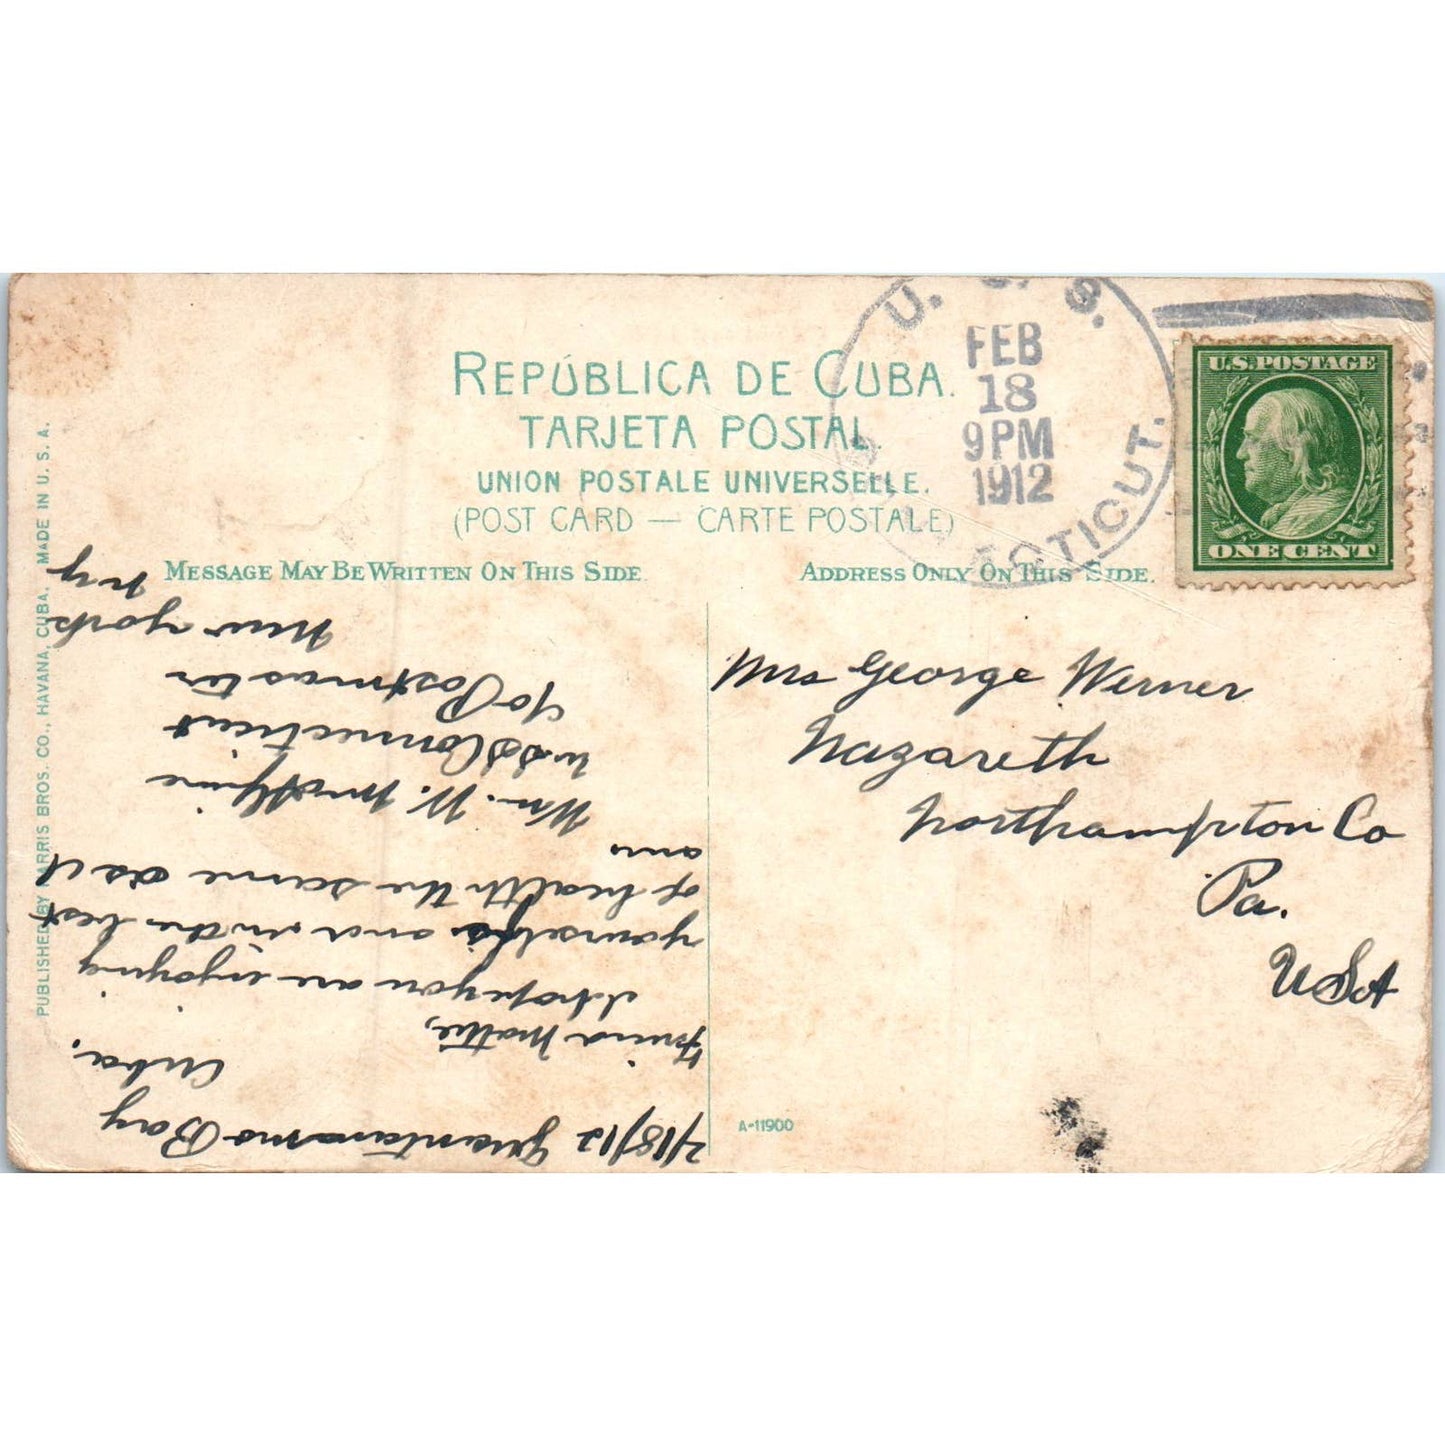 REPÚBLICA DE CUBA.
TARJETA POSTAL.
UNION POSTALE UNIVERSELLE.
(POST CARD — CARTE POSTALE)
MESSAGE MAY BE WRITTEN ON THIS SIDE
ADDRESS ONLY ON THIS SIDE.
U. S. S.
CONNECTICUT.
FEB
18
9 PM
1912
U.S. POSTAGE
ONE CENT
PUBLISHED BY HARRIS BROS. CO., HAVANA, CUBA. MADE IN U. S. A.
A-11900
Mrs George Werner
Nazareth
Northampton Co
Pa.
USA
2/18/12 Guantanamo Bay
Cuba.
Friend Mattie,
I hope you are enjoying
yourself and in the best
of health the same as it
Wm. W.
USS Connecticut
c/o Postmaster
New York
N Y